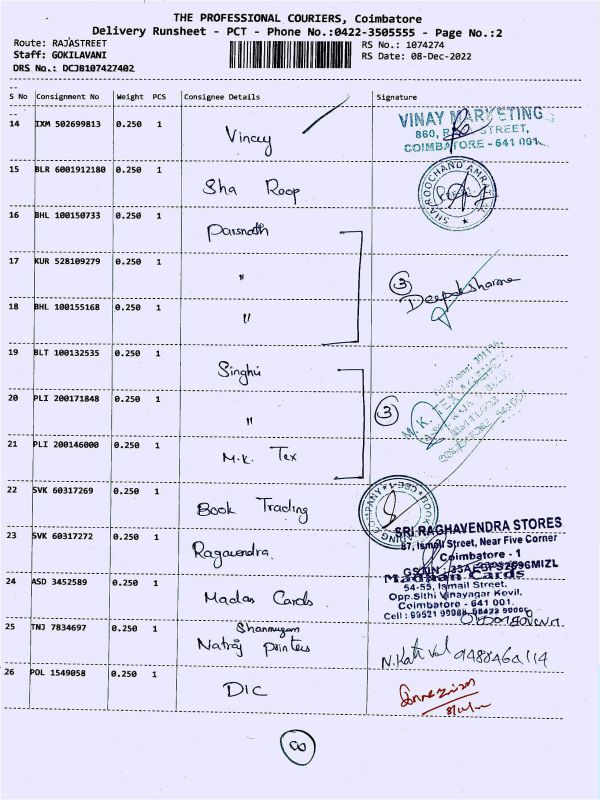 THE PROFESSIONAL COURIERS, Coimbatore
Delivery Runsheet - PCT - Phone No.:0422-3505555 - Page No.:2
Route: RAJASTREET
Staff: GOKILAVANI
DRS No.: DCJB107427402
RS No.: 1074274
RS Date: 08-Dec-2022
S No Consignment No Weight PCS Consignee Details Signature
14 IXM 502699813 0.250 1 Vinay
VINAY MARKETING
860, STREET,
COIMBATORE - 641 001.
15 BLR 6001912180 0.250 1 Sha Roop
SHA ROOPCHAND
16 BHL 100150733 0.250 1 Parsnath
17 KUR 528109279 0.250 1 "
3
Deepak Sharma
18 BHL 100155168 0.250 1 "
19 BLT 100132535 0.250 1 Singhvi
20 PLI 200171848 0.250 1 "
3
M.K. TEX
21 PLI 200146000 0.250 1 M.K. Tex
22 SVK 60317269 0.250 1 Book Trading
COMPANY * CBE-1 * BOOK
23 SVK 60317272 0.250 1 Ragavendra.
SRI RAGHAVENDRA STORES
87, Ismail Street, Near Five Corner
Coimbatore - 1
24 ASD 3452589 0.250 1 Madas Cards
Madhan Cards
54-55, Ismail Street,
Opp.Sithi Vinayagar Kovil,
Coimbatore - 641 001.
Cell : 99521
25 TNJ 7834697 0.250 1 Shanmugam
Natraj printers
26 POL 1549058 0.250 1 DIC